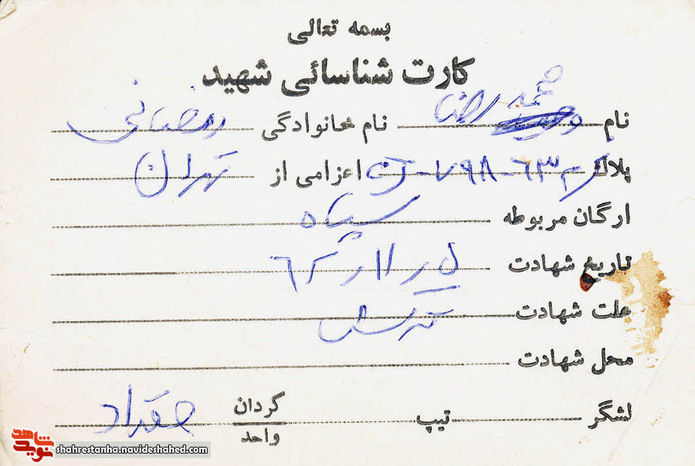 بسمه تعالی
کارت شناسائی شهید
نام محمد رضا نام خانوادگی رمضانی
پلاک اعزامی از تهران
ارگان مربوطه سپاه
تاریخ شهادت
علت شهادت ترکش
محل شهادت
لشگر تیپ گردان واحد مقداد
شاهد نوید shahrestanha.navideshahed.com